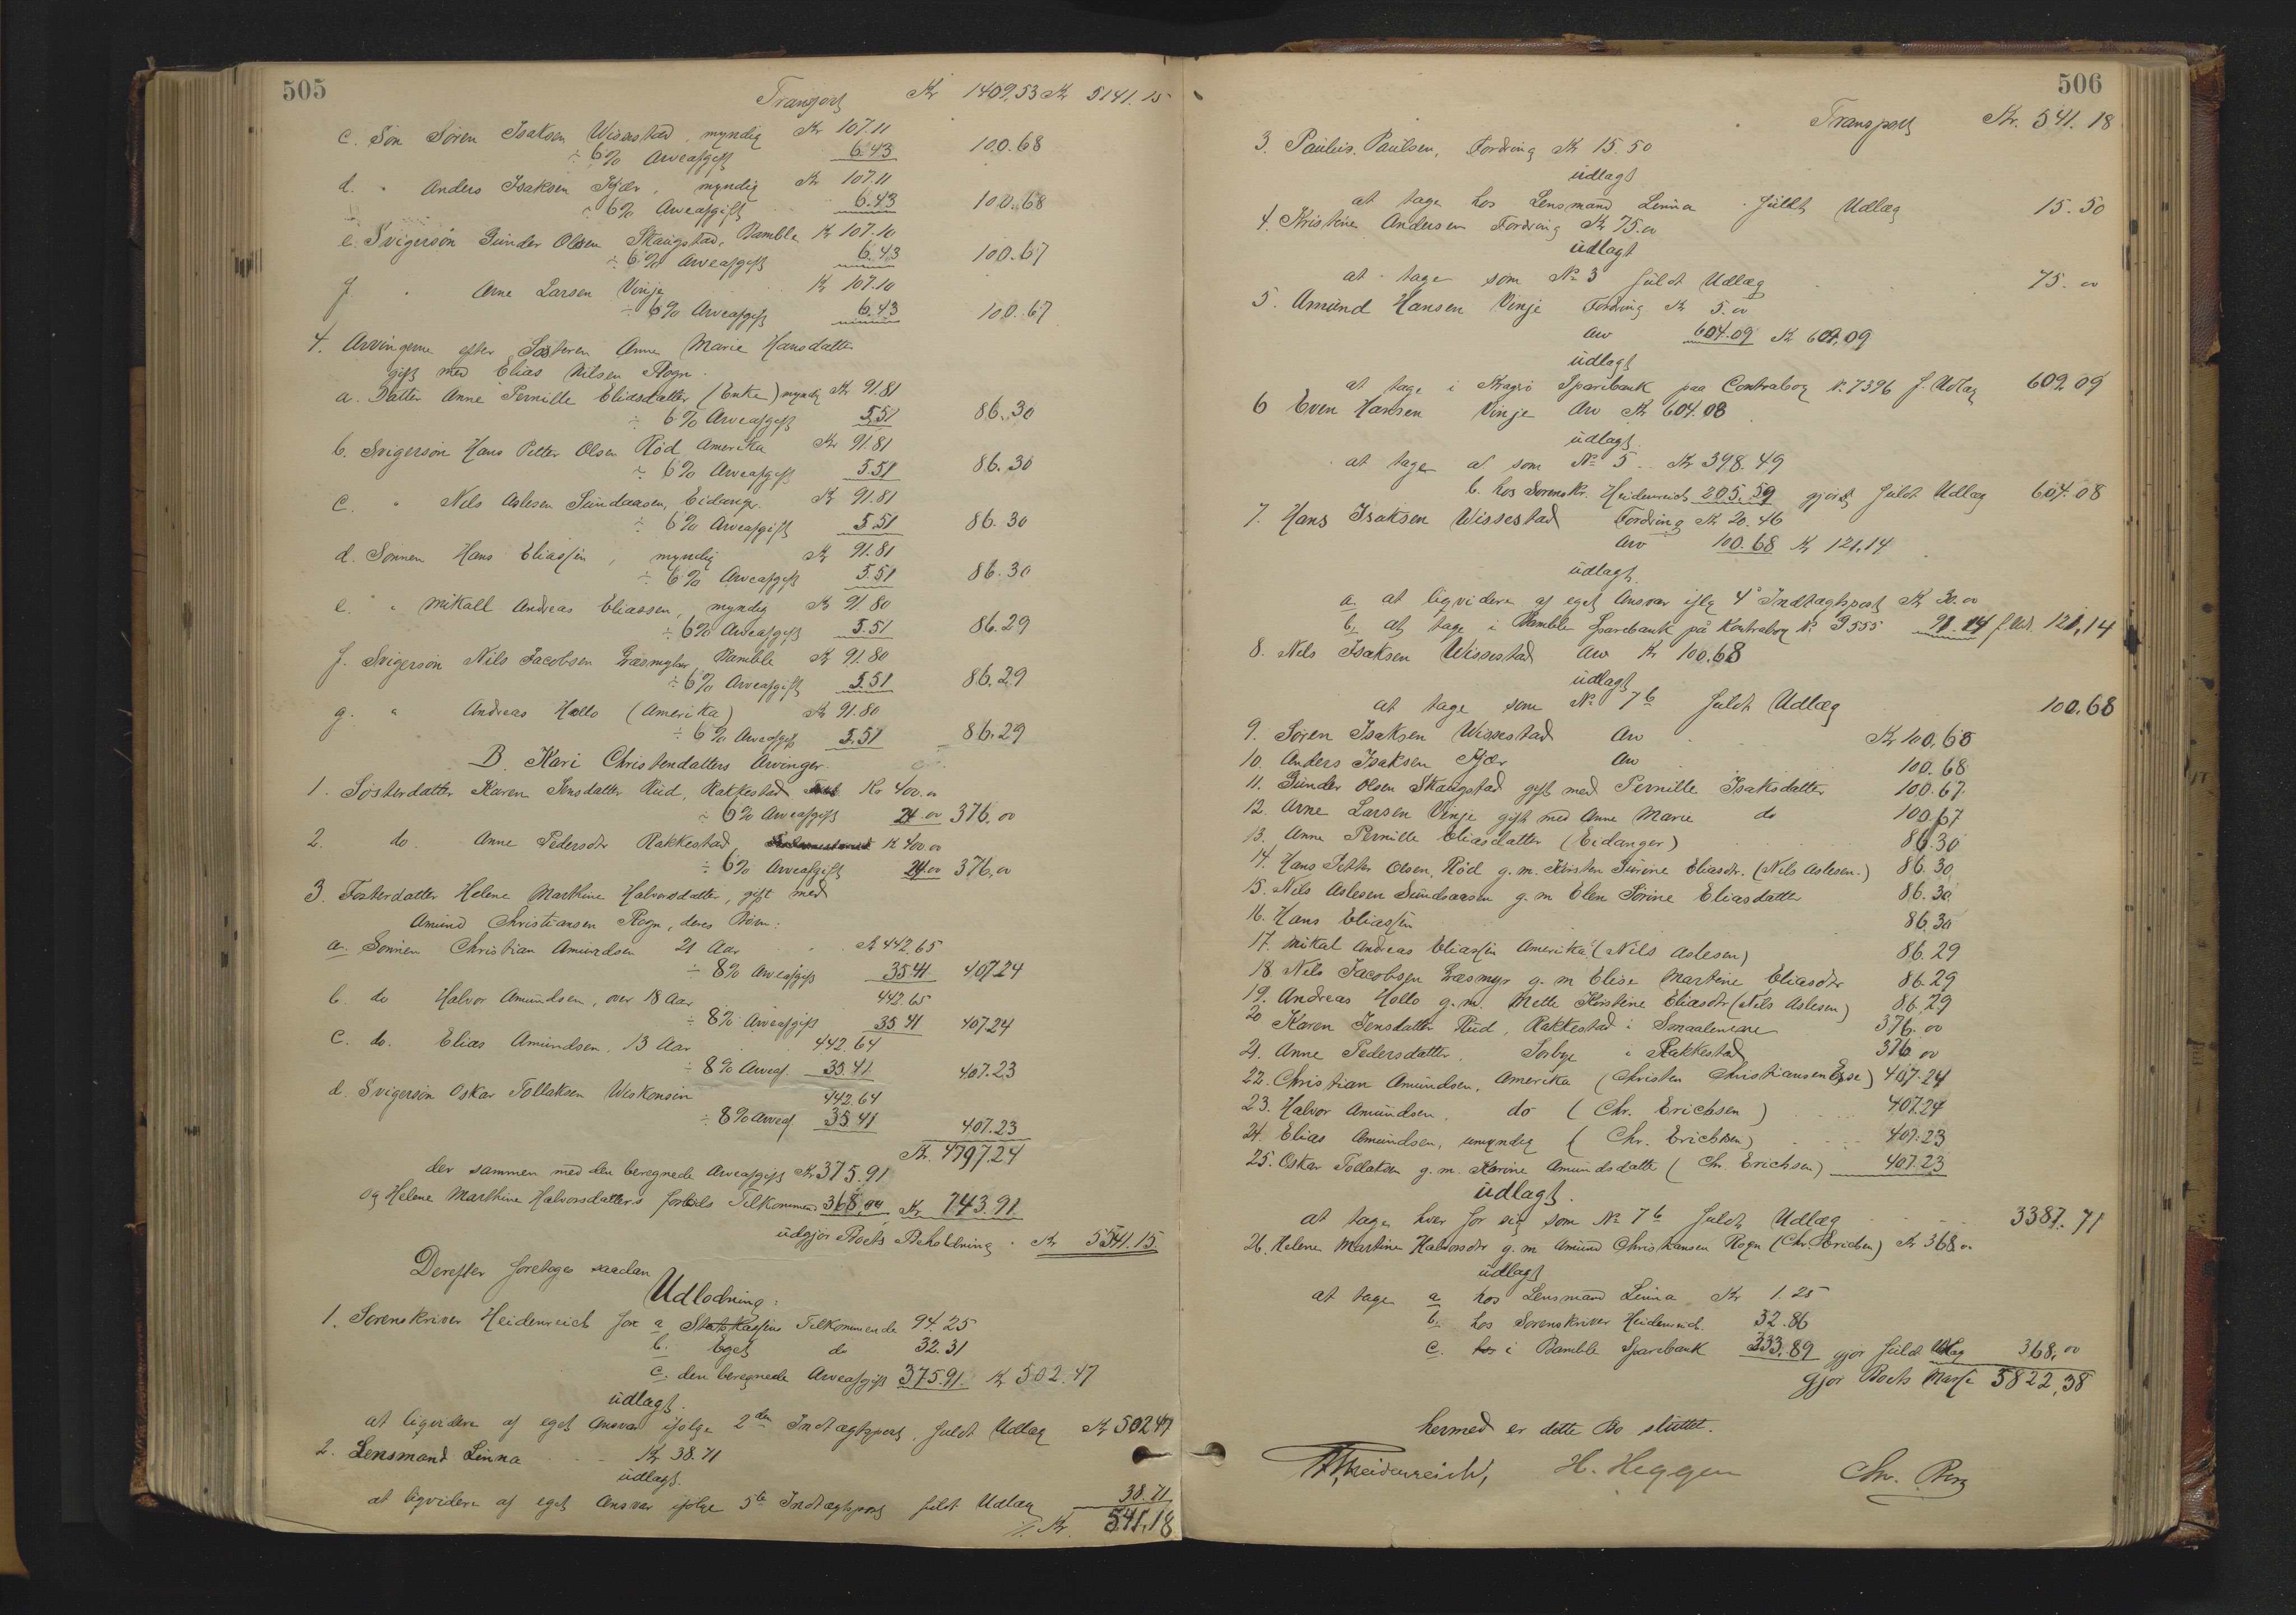 505
Transport Kr 1409.53 Kr 5141.15
c. Søn Søren Isaksen Wissestad, myndig Kr 107.11
÷ 6% Arveafgift 6.43 100.68
d. " Anders Isaksen Kjær, myndig Kr 107.11
÷ 6% Arveafgift 6.43 100.68
e. Svigersøn Gunder Olsen Skaugstad, Bamble Kr 107.10
÷ 6% Arveafgift 6.43 100.67
f. " Arne Larsen Vinje Kr 107.10
÷ 6% Arveafgift 6.43 100.67
4. Arvingerne efter Søsteren Anne Marie Hansdatter
gift med Elias Nilsen Rogn.
a. Datter Anne Pernille Eliasdatter (Enke) myndig Kr 91.81
÷ 6% Arveafgift 5.51 86.30
b. Svigersøn Hans Petter Olsen Rød Amerika Kr 91.81
÷ 6% Arveafgift 5.51 86.30
c. " Nils Aslesen Sundaasen, Eidanger Kr 91.81
÷ 6% Arveafgift 5.51 86.30
d. Sønnen Hans Eliassen, myndig Kr 91.81
÷ 6% Arveafgift 5.51 86.30
e. " Mikall Andreas Eliassen, myndig Kr 91.80
÷ 6% Arveafgift 5.51 86.29
f. Svigersøn Nils Jacobsen Læsmyhr Bamble Kr 91.80
÷ 6% Arveafgift 5.51 86.29
g. " Andreas Holto (Amerika) Kr 91.80
÷ 6% Arveafgift 5.51 86.29
B. Kari Christendatters Arvinger.
1. Søsterdatter Karen Jensdatter Rud, Rakkestad Kr 400.00
÷ 6% Arveafgift 24.00 376.00
2. do. Anne Pedersdtr Rakkestad, Kr 400.00
÷ 6% Arveafgift 24.00 376.00
3. Fosterdatter Helene Marthine Halvorsdatter, gift med
Amund Christiansen Rogn, deres Børn:
a. Sønnen Christian Amundsen 21 Aar Kr 442.65
÷ 8% Arveafgift 35.41 407.24
b. do Halvor Amundsen, over 18 Aar 442.65
÷ 8% Arveafgift 35.41 407.24
c. do. Elias Amundsen, 13 Aar 442.64
÷ 8% Arveaf. 35.41 407.23
d. Svigersøn Oskar Tollaksen Wiskonsin 442.64
÷ 8% Arveaf 35.41 407.23
Kr. 4797.24
der sammen med den beregnede Arveafgift Kr 375.91
og Helene Marthine Halvorsdatters forlods Tilkommende 368.00 Kr 743.91
udgjør Boets Beholdning Kr 5541.15
Derefter foretoges saadan
Udlodning:
1. Sorenskriver Heidenreich for a Statskassens Tilkommende 94.25
b. Eget do 32.31
c. den beregnede Arveafgift 375.91 Kr 502.47
udlagt.
at ligvidere af eget Ansvar ifølge 2den Indtægtspost, fuldt Udlæg Kr 502.47
2. Lensmand Linna Kr 38.71
udlagt.
at ligvidere af eget Ansvar ifølge 5te Indtægtspost fuldt Udlæg 38.71
Kr. 541.18
506
Transport Kr. 541.18
3. Paulus Paulsen, Fordring Kr 15.50
udlagt
at tage hos Lensmand Linna fuldt Udlæg 15.50
4. Kristine Andersen Fordring Kr 75.00
udlagt
at tage som No 3 fuldt Udlæg 75.00
5. Amund Hansen Vinje Fordring Kr 5.00
Arv 604.09 Kr 609.09
udlagt
at tage i Kragerø Sparebank paa Contrabog No 7396 f. Udlæg 609.09
6 Even Hansen Vinje Arv Kr 604.08
udlagt.
at tage a som No 5 Kr 398.49
b. hos Sorenskr. Heidenreich 205.59 gjør fuldt Udlæg 604.08
7. Hans Isaksen Wissestad Fordring Kr 20.46
Arv 100.68 Kr 121.14
udlagt.
a. at ligvidere af eget Ansvar iflg 4de Indtægtspost Kr 30.00
b. at tage i Bamble Sparebank på Kontrabog No 9555 91.14 f. Udl. 121.14
8. Nils Isaksen Wissestad Arv Kr 100.68
udlagt
at tage som No 7b fuldt Udlæg 100.68
9. Søren Isaksen Wissestad Arv Kr 100.68
10. Anders Isaksen Kjær Arv 100.68
11. Gunder Olsen Skaugstad gift med Pernille Isaksdatter 100.67
12. Arne Larsen Vinje gift med Anne Marie do 100.67
13. Anne Pernille Eliasdatter (Eidanger) 86.30
14. Hans Petter Olsen, Rød g. m. Kirsten Surine Eliasdtr. (Nils Aslesen.) 86.30
15. Nils Aslesen Sundsaasen g. m Elen Sörine Eliasdatter 86.30
16. Hans Eliassen 86.30
17. Mikal Andreas Eliassen Amerika (Nils Aslesen) 86.29
18. Nils Jacobsen Læsmyr g. m Elise Martine Eliasdtr 86.29
19. Andreas Holto g. m. Mette Kirstine Eliasdtr (Nils Aslesen) 86.29
20 Karen Jensdatter Rud, Rakkestad i Smaalenene 376.00
21. Anne Pedersdatter, Sørbye i Rakkestad 376.00
22. Christian Amundsen, Amerika (Christen Christiansen ) 407.24
23. Halvor Amundsen, do (Chr. Erichsen) 407.24
24. Elias Amundsen, umyndig (Chr. Erichsen) 407.23
25. Oskar Tollaksen g. m. Karine Amundsdatter (Chr. Erichsen) 407.23
udlagt.
at tage hver for sig som No 7b fuldt Udlæg 3387.71
26. Helene Martine Halvorsdtr g. m Amund Christiansen Rogn (Chr. Erichsen) Kr 368.00
udlagt
at tage a hos Lensmand Linna Kr 1.25
b. hos Sorenskriver Heidenreich 32.86
c. hos i Bamble Sparebank 333.89 gjør fuldt Udlæg 368.00
Gjør Boets Masse 5822.38
hermed er dette Bo sluttet.
Heidenreich, H. Heggen Chr. Berg